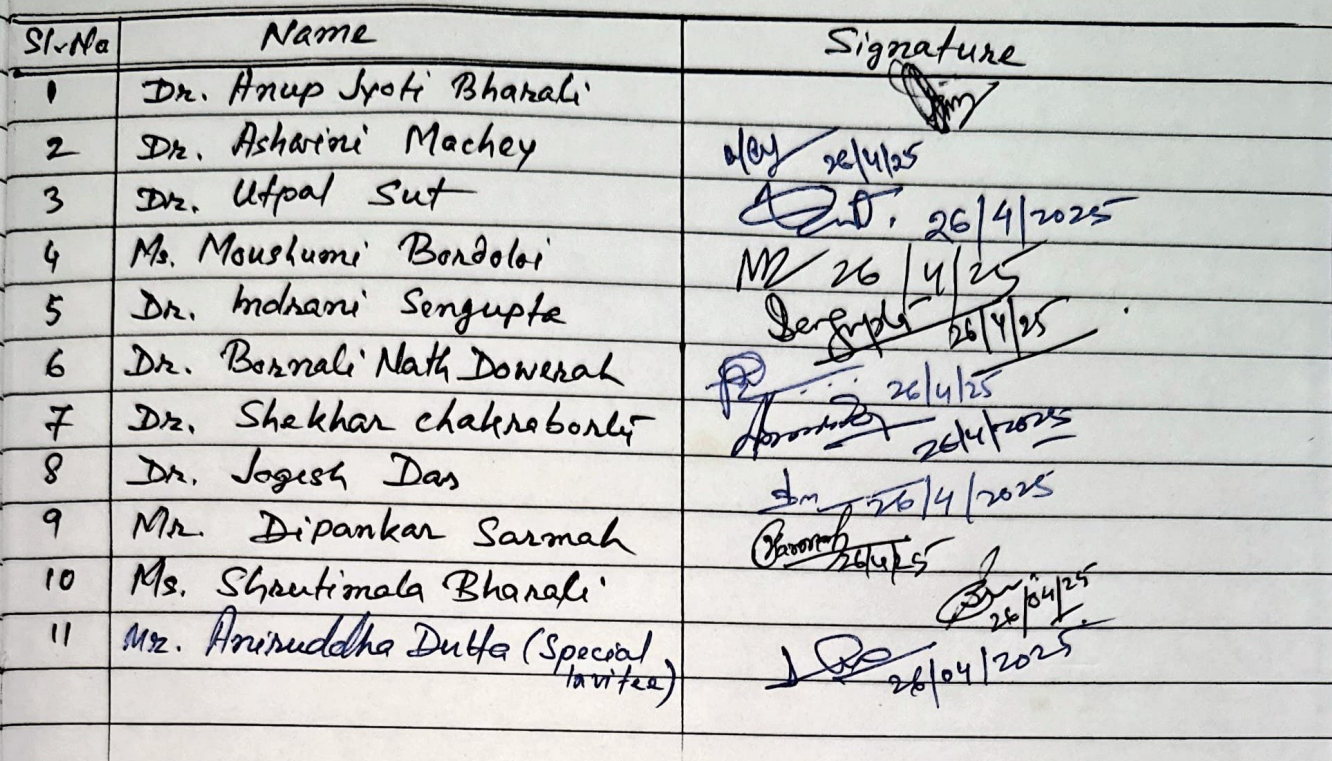 Sl.No Name Signature
1 Dr. Anup Jyoti Bharali
2 Dr. Ashwini Machey 26/4/25
3 Dr. Utpal Sut 26/4/2025
4 Ms. Moushumi Bordoloi 26/4/25
5 Dr. Indrani Sengupta Sengupta 26/4/25
6 Dr. Bornali Nath Dowerah 26/4/25
7 Dr. Shekhar Chakraborty 26/4/2025
8 Dr. Jogesh Das 26/4/2025
9 Mr. Dipankar Sarmah 26/4/25
10 Ms. Shrutimala Bharali 26/04/25
11 Mr. Aniruddha Dutta (Special Invitee) 26/04/2025